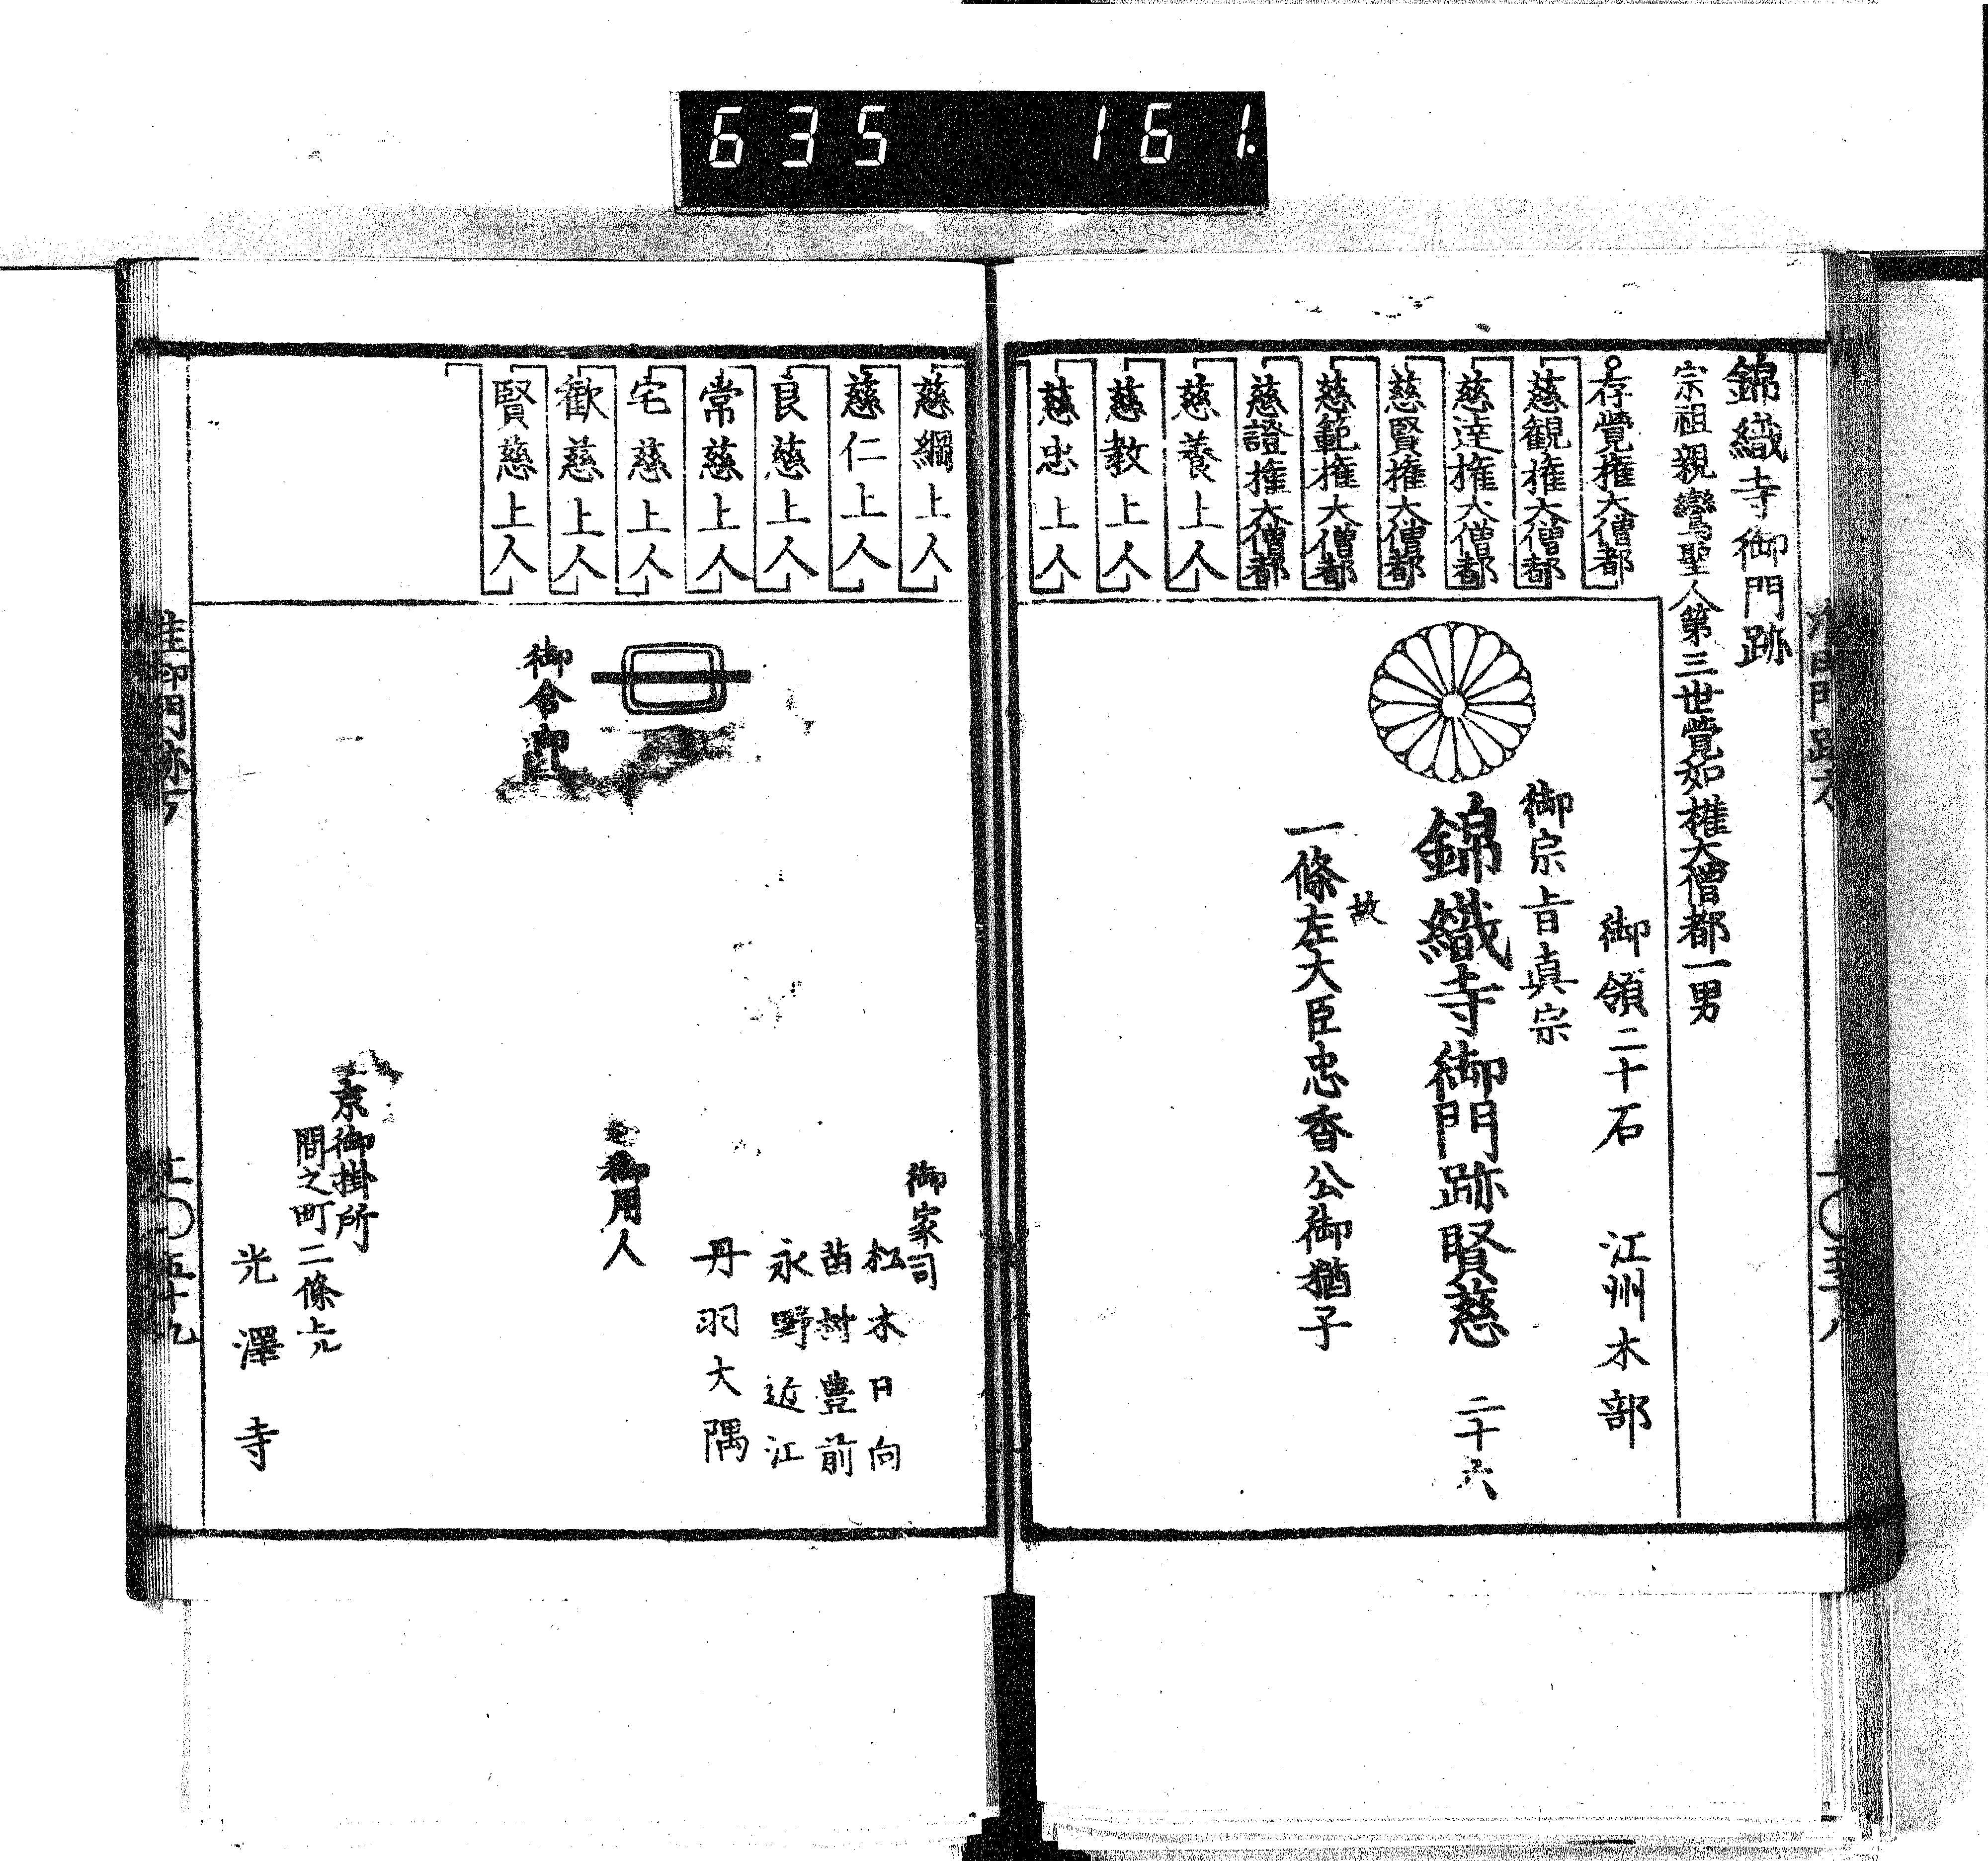 635 161.
錦織寺御門跡
宗祖親鸞聖人第三世覺如權大僧都一男
存覺権大僧都
慈観権大僧都
慈達権大僧都
慈賢権大僧都
慈範権大僧都
慈證権大僧都
慈養上人
慈教上人
慈忠上人
御領二十石 江州木部
御宗旨真宗
錦織寺御門跡賢慈 二十六
故
一條左大臣忠香公御猶子
慈綱上人
慈仁上人
良慈上人
常慈上人
宅慈上人
歓慈上人
賢慈上人
御合印
御家司
松木日向
苗樹豊前
永野近江
丹羽大隅
御用人
京御掛所
間之町二條上ル
光澤寺